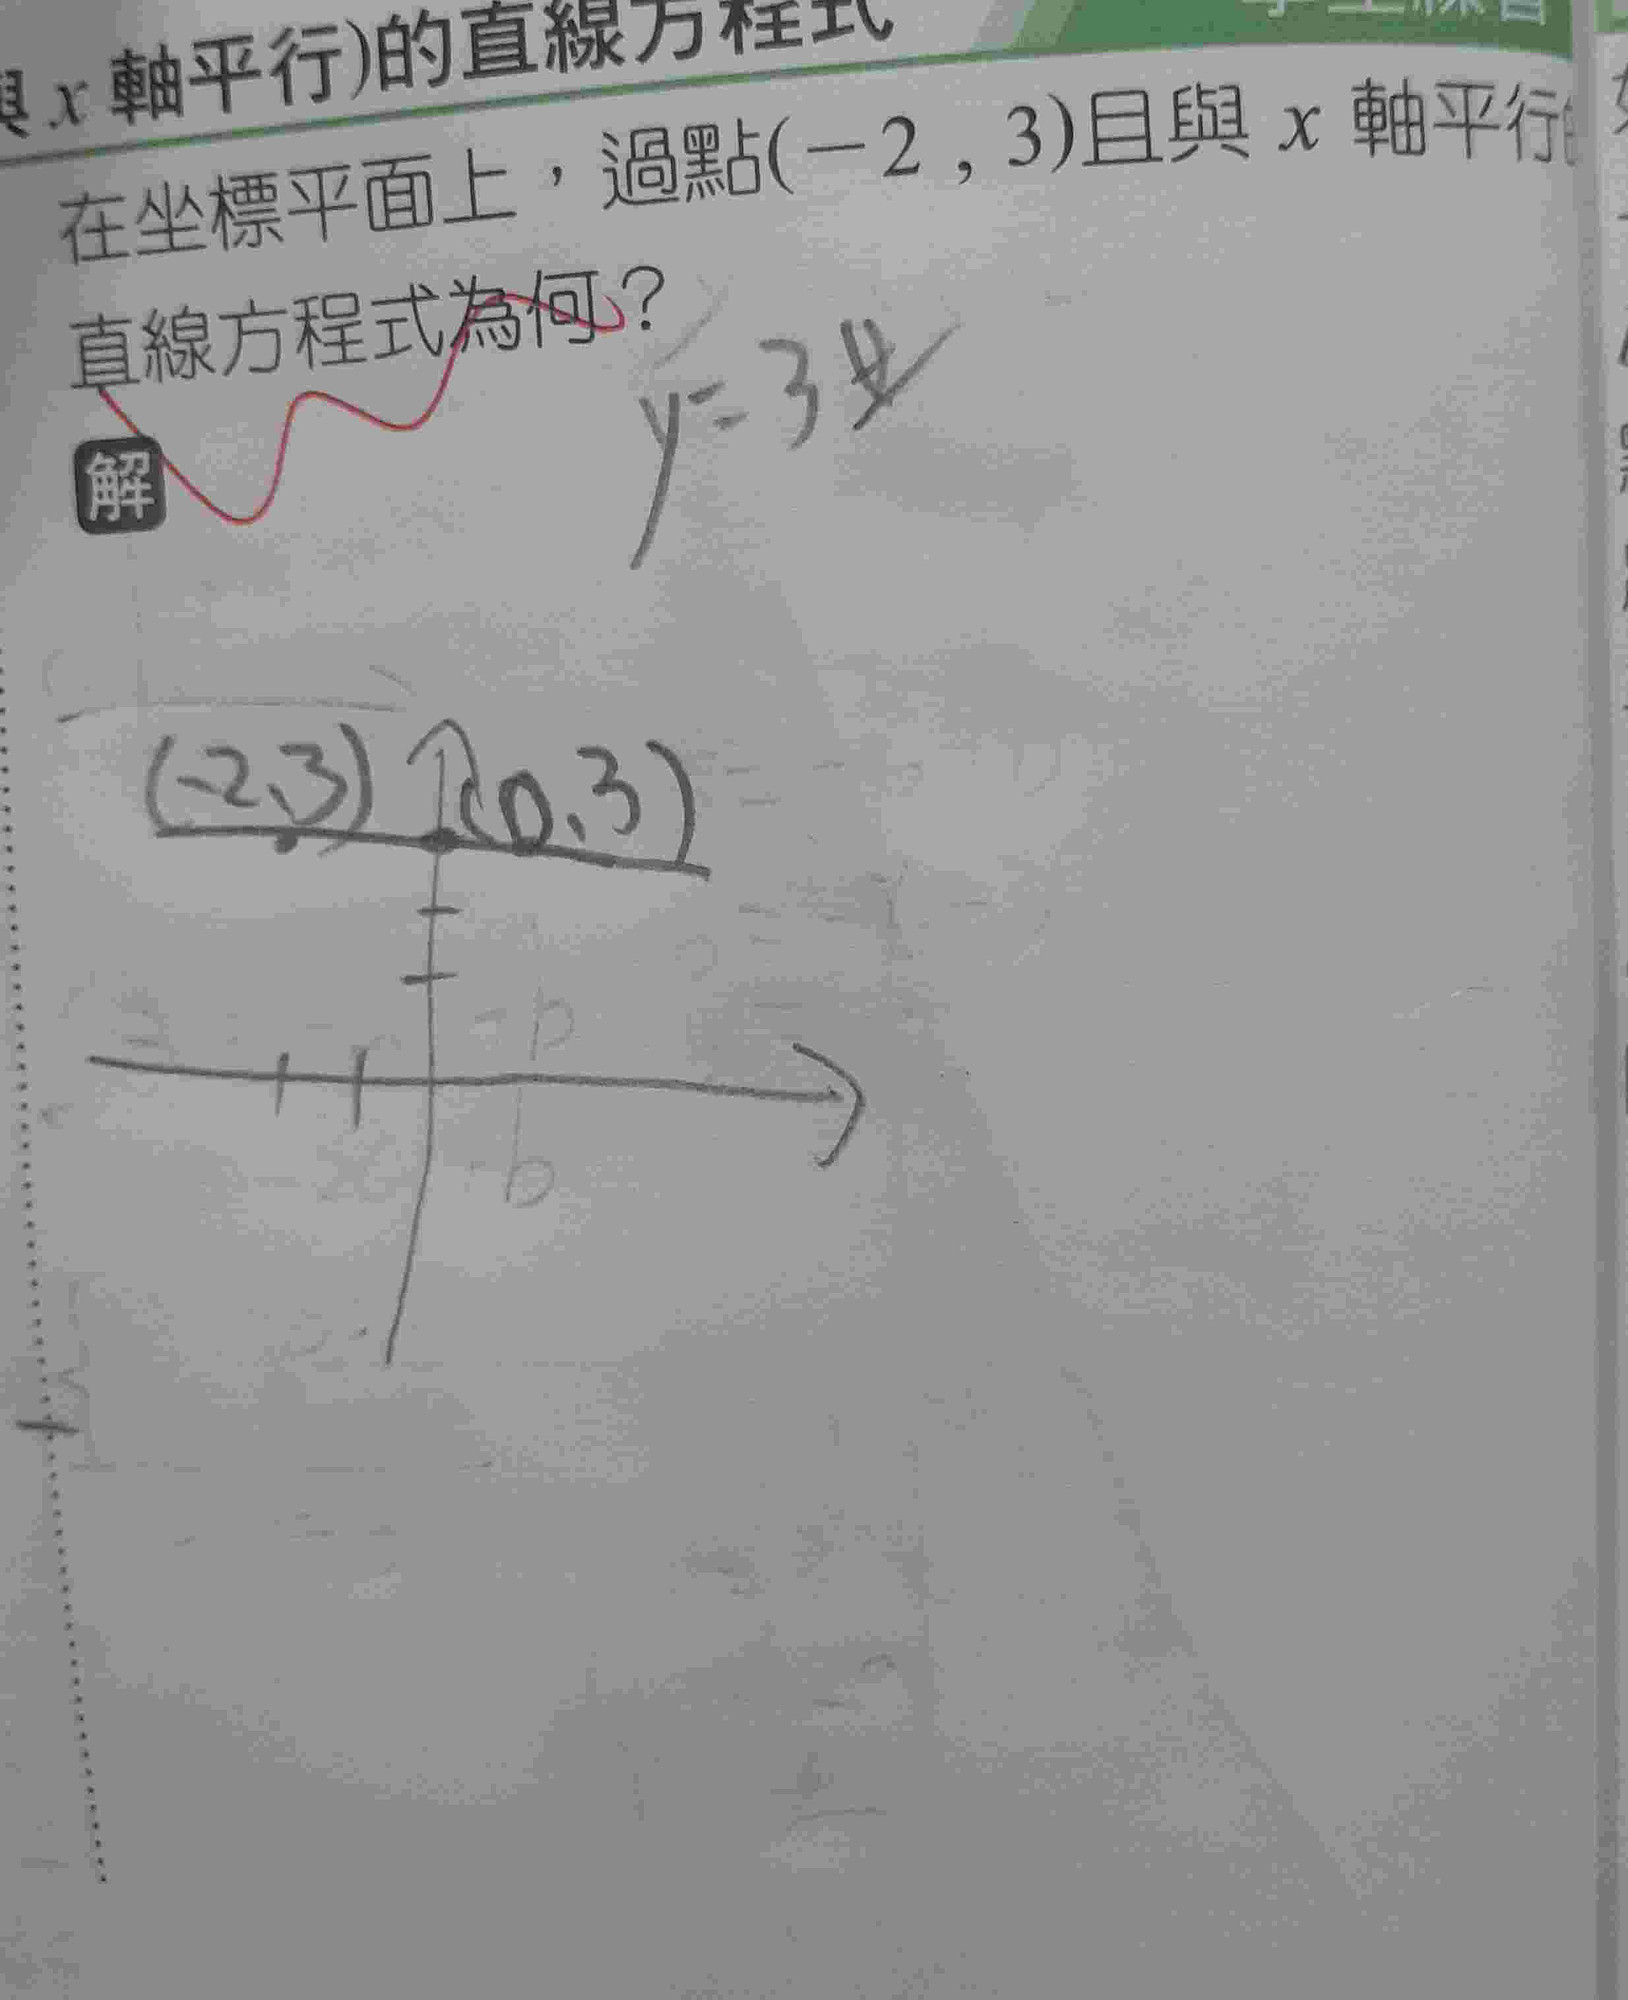 與 x 軸平行)的直線方程式
在坐標平面上，過點(－2 , 3)且與 x 軸平行的
直線方程式為何？
y=3
解
(-2,3) (0,3)